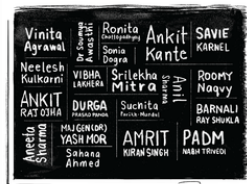 Vinita
Agrawal
Dr Soumya
Awasthi
Ronita
Chattopadhyay
Sonia
Dogra
Ankit
Kante
SAVIE
KARNEL
Neelesh
Kulkarni
VIBHA
LAKHERA
Srilekha
Mitra
Anil
Sharma
ROOMY
NAQVY
ANKIT
RAJ OJHA
DURGA
PRASAD PANDA
Suchita
Parikh-Mundul
BARNALI
RAY SHUKLA
Aneeta
Sharma
MAJ GEN (DR)
YASH MOR
Sahana
Ahmed
AMRIT
KIRAN SINGH
PADM
NABH TRIVEDI